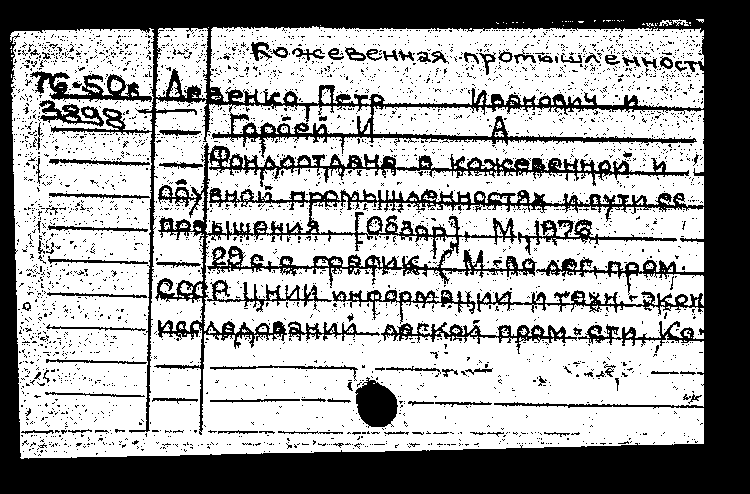 Кожевенная промышленность
76-50к Левенко Петр Иванович и
3898
Горбей И А
Фондоотдача в кожевенной и
обувной промышленностях и пути ее
повышения. [Обзор]. М., 1976.
29 с. с график. (М-во лег. пром.
СССР. ЦНИИ информации и техн.-экон
исследований легкой пром-сти. Ко-